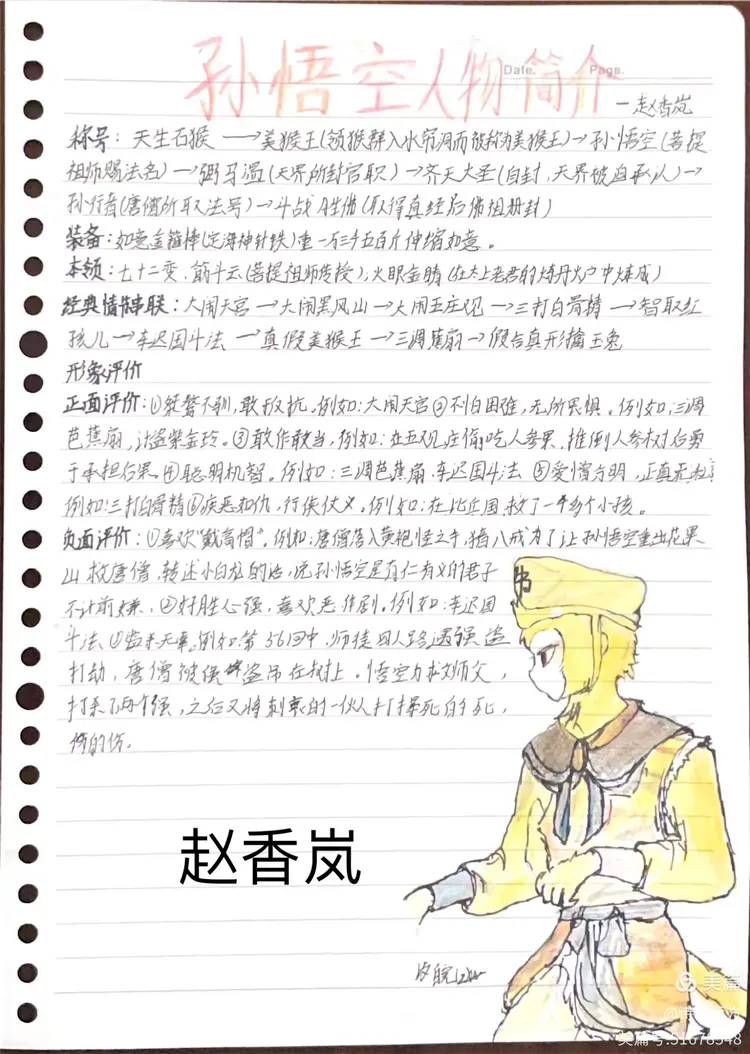 孙悟空人物简介
Date. Page.
—赵香岚
称号：天生石猴→美猴王(领猴群入水帘洞而被称为美猴王)→孙悟空(菩提
祖师赐法名)→弼马温(天界所封官职)→齐天大圣(自封，天界被迫承认)→
孙行者(唐僧所取法号)→斗战胜佛(取得真经后佛祖册封)
装备：如意金箍棒(定海神针铁)重一万三千五百斤伸缩如意。
本领：七十二变，筋斗云(菩提祖师传授)，火眼金睛(在太上老君的炼丹炉中炼成)
经典情节串联：大闹天宫→大闹黑风山→大闹五庄观→三打白骨精→智取红
孩儿→车迟国斗法→真假美猴王→三调蕉扇→假合真形擒玉兔
形象评价
正面评价：①桀骜不驯，敢于反抗。例如：大闹天宫②不怕困难，无所畏惧。例如，三调
芭蕉扇，计盗紫金玲。③敢作敢当，例如：在五观庄偷吃人参果，推倒人参树后勇
于承担后果。④聪明机智。例如：三调芭蕉扇，车迟国斗法⑤爱憎分明，正直无私
例如：三打白骨精⑥疾恶如仇，行侠仗义。例如：在比丘国，救了一千多个小孩。
负面评价：①喜欢“戴高帽”。例如：唐僧落入黄袍怪之手，猪八戒为了让孙悟空重出花果
山救唐僧，转述小白龙的话，说孙悟空是有仁有义的君子
不计前嫌，②好胜心强，喜欢恶作剧。例如：车迟国
斗法 滥杀无辜。例如：第56回中，师徒四人路遇强盗
打劫，唐僧被强盗吊在树上。悟空为救师父，
打杀了两个强，之后又将剩衷的一伙人打得死的死，
伤的伤。
赵香岚
美篇
美篇号:51078548